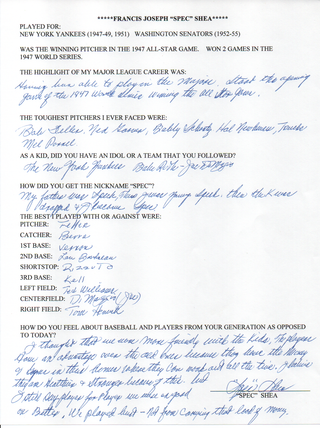 *****FRANCIS JOSEPH "SPEC" SHEA*****
PLAYED FOR:
NEW YORK YANKEES (1947-49, 1951)    WASHINGTON SENATORS (1952-55)
WAS THE WINNING PITCHER IN THE 1947 ALL-STAR GAME.    WON 2 GAMES IN THE
1947 WORLD SERIES.
THE HIGHLIGHT OF MY MAJOR LEAGUE CAREER WAS:
able to play in the Majors, the opening
game of the 1947 World Series winning the All Star Game.
THE TOUGHEST PITCHERS I EVER FACED WERE:
Bob Feller, Hal Newhouser,
Mel Parnell
AS A KID, DID YOU HAVE AN IDOL OR A TEAM THAT YOU FOLLOWED?
The New York Yankees Babe Ruth - Joe DiMaggio
HOW DID YOU GET THE NICKNAME "SPEC"?
My father was I was young Speck. then the K was
dropped & I became Spec
THE BEST PLAYED WITH OR AGAINST WERE:
PITCHER: Feller
CATCHER: Berra
1ST BASE: Vernon
2ND BASE: Lou Boudreau
SHORTSTOP: Rizzuto
3RD BASE: Kell
LEFT FIELD: Ted Williams
CENTERFIELD: DiMaggio (Joe)
RIGHT FIELD: Tom Henrich
HOW DO YOU FEEL ABOUT BASEBALL AND PLAYERS FROM YOUR GENERATION AS OPPOSED
TO TODAY?
I thought that we were more friendly with the kids, The players
have an advantage over the old ones because they have the money
& in their homes where they can work out all the time. I believe
they are healthier & stronger because of this but
I still say player for player we were as good
or Better, We played hard - Not for that kind of money
"SPEC" SHEA